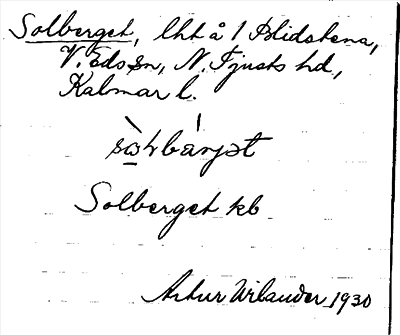 Solberget, lht å 1 Blidstena,
V. Eds sn, N. Tjusts hd,
Kalmar l.
Solberget kb
Artur Wilander 1930